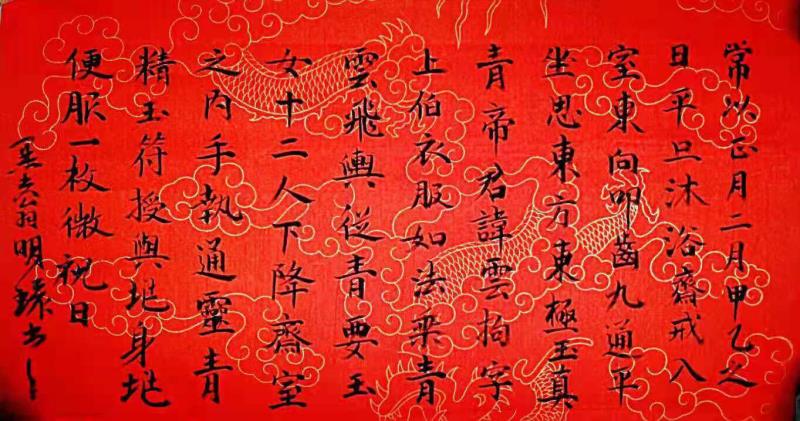 常以正月二月甲乙之
日平旦沐浴齋戒入
室東向叩齒九通平
坐思東方東極玉真
青帝君諱雲拘字
上伯衣服如法乘青
雲飛輿從青要玉
女十二人下降齋室
之内手執通靈青
精玉符授與垲身垲
便服一枚微祝曰
翁明 書